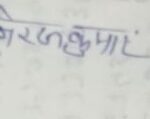 नीरजकुमार